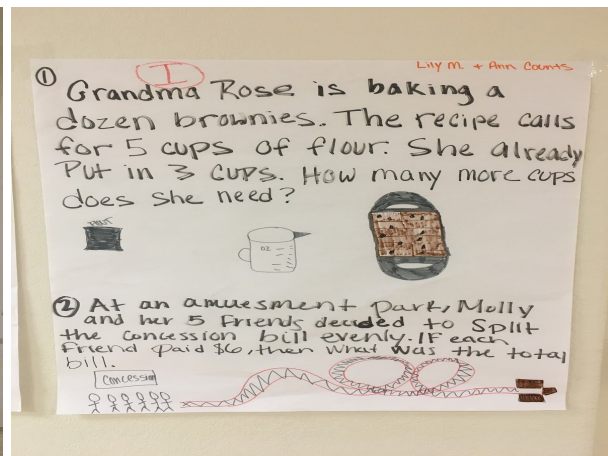 Lily M. + Ann Counts
I
① Grandma Rose is baking a
dozen brownies. The recipe calls
for 5 cups of flour. She already
Put in 3 cups. How many more cups
does she need?
OZ
② At an amuesment park, Molly
and her 5 friends decided to Split
the concession bill evenly. If each
Friend paid $6, then what was the total
bill.
Concession